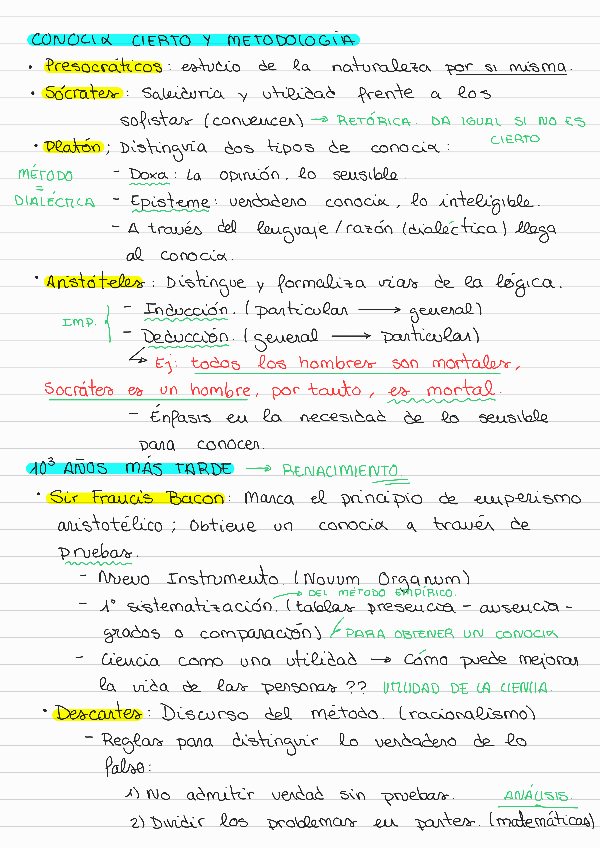 CONOCIX CIERTO Y METODOLOGÍA
• Presocráticos: estudio de la naturaleza por sí misma.
• Sócrates: Sabiduría y utilidad frente a los
sofistas (convencer) → RETÓRICA. DA IGUAL SI NO ES
CIERTO
• Platón; Distinguía dos tipos de conocix:
MÉTODO
=
DIALÉCTICA
- Doxa: La opinión, lo sensible.
- Episteme: verdadero conocix, lo inteligible.
- A través del lenguaje/razón (dialéctica) llega
al conocix.
• Aristóteles: Distingue y formaliza vías de la lógica.
IMP.
- Inducción. (particular → general)
- Deducción. (general → particular)
↳ Ej: todos los hombres son mortales,
Sócrates es un hombre, por tanto, es mortal.
- Énfasis en la necesidad de lo sensible
para conocer.
10³ AÑOS MÁS TARDE → RENACIMIENTO
• Sir Francis Bacon: Marca el principio de emperismo
aristotélico; Obtiene un conocix a través de
pruebas.
- Nuevo Instrumento. (Novum Organum)
→ DEL MÉTODO EMPÍRICO.
- 1ª sistematización. (tablas presencia - ausencia -
grados o comparación) PARA OBTENER UN CONOCIX
- Ciencia como una utilidad → Cómo puede mejorar
la vida de las personas?? UTILIDAD DE LA CIENCIA.
• Descartes: Discurso del método. (racionalismo)
- Reglas para distinguir lo verdadero de lo
falso:
1) No admitir verdad sin pruebas. ANÁLISIS.
2) Dividir los problemas en partes. (matemáticas)